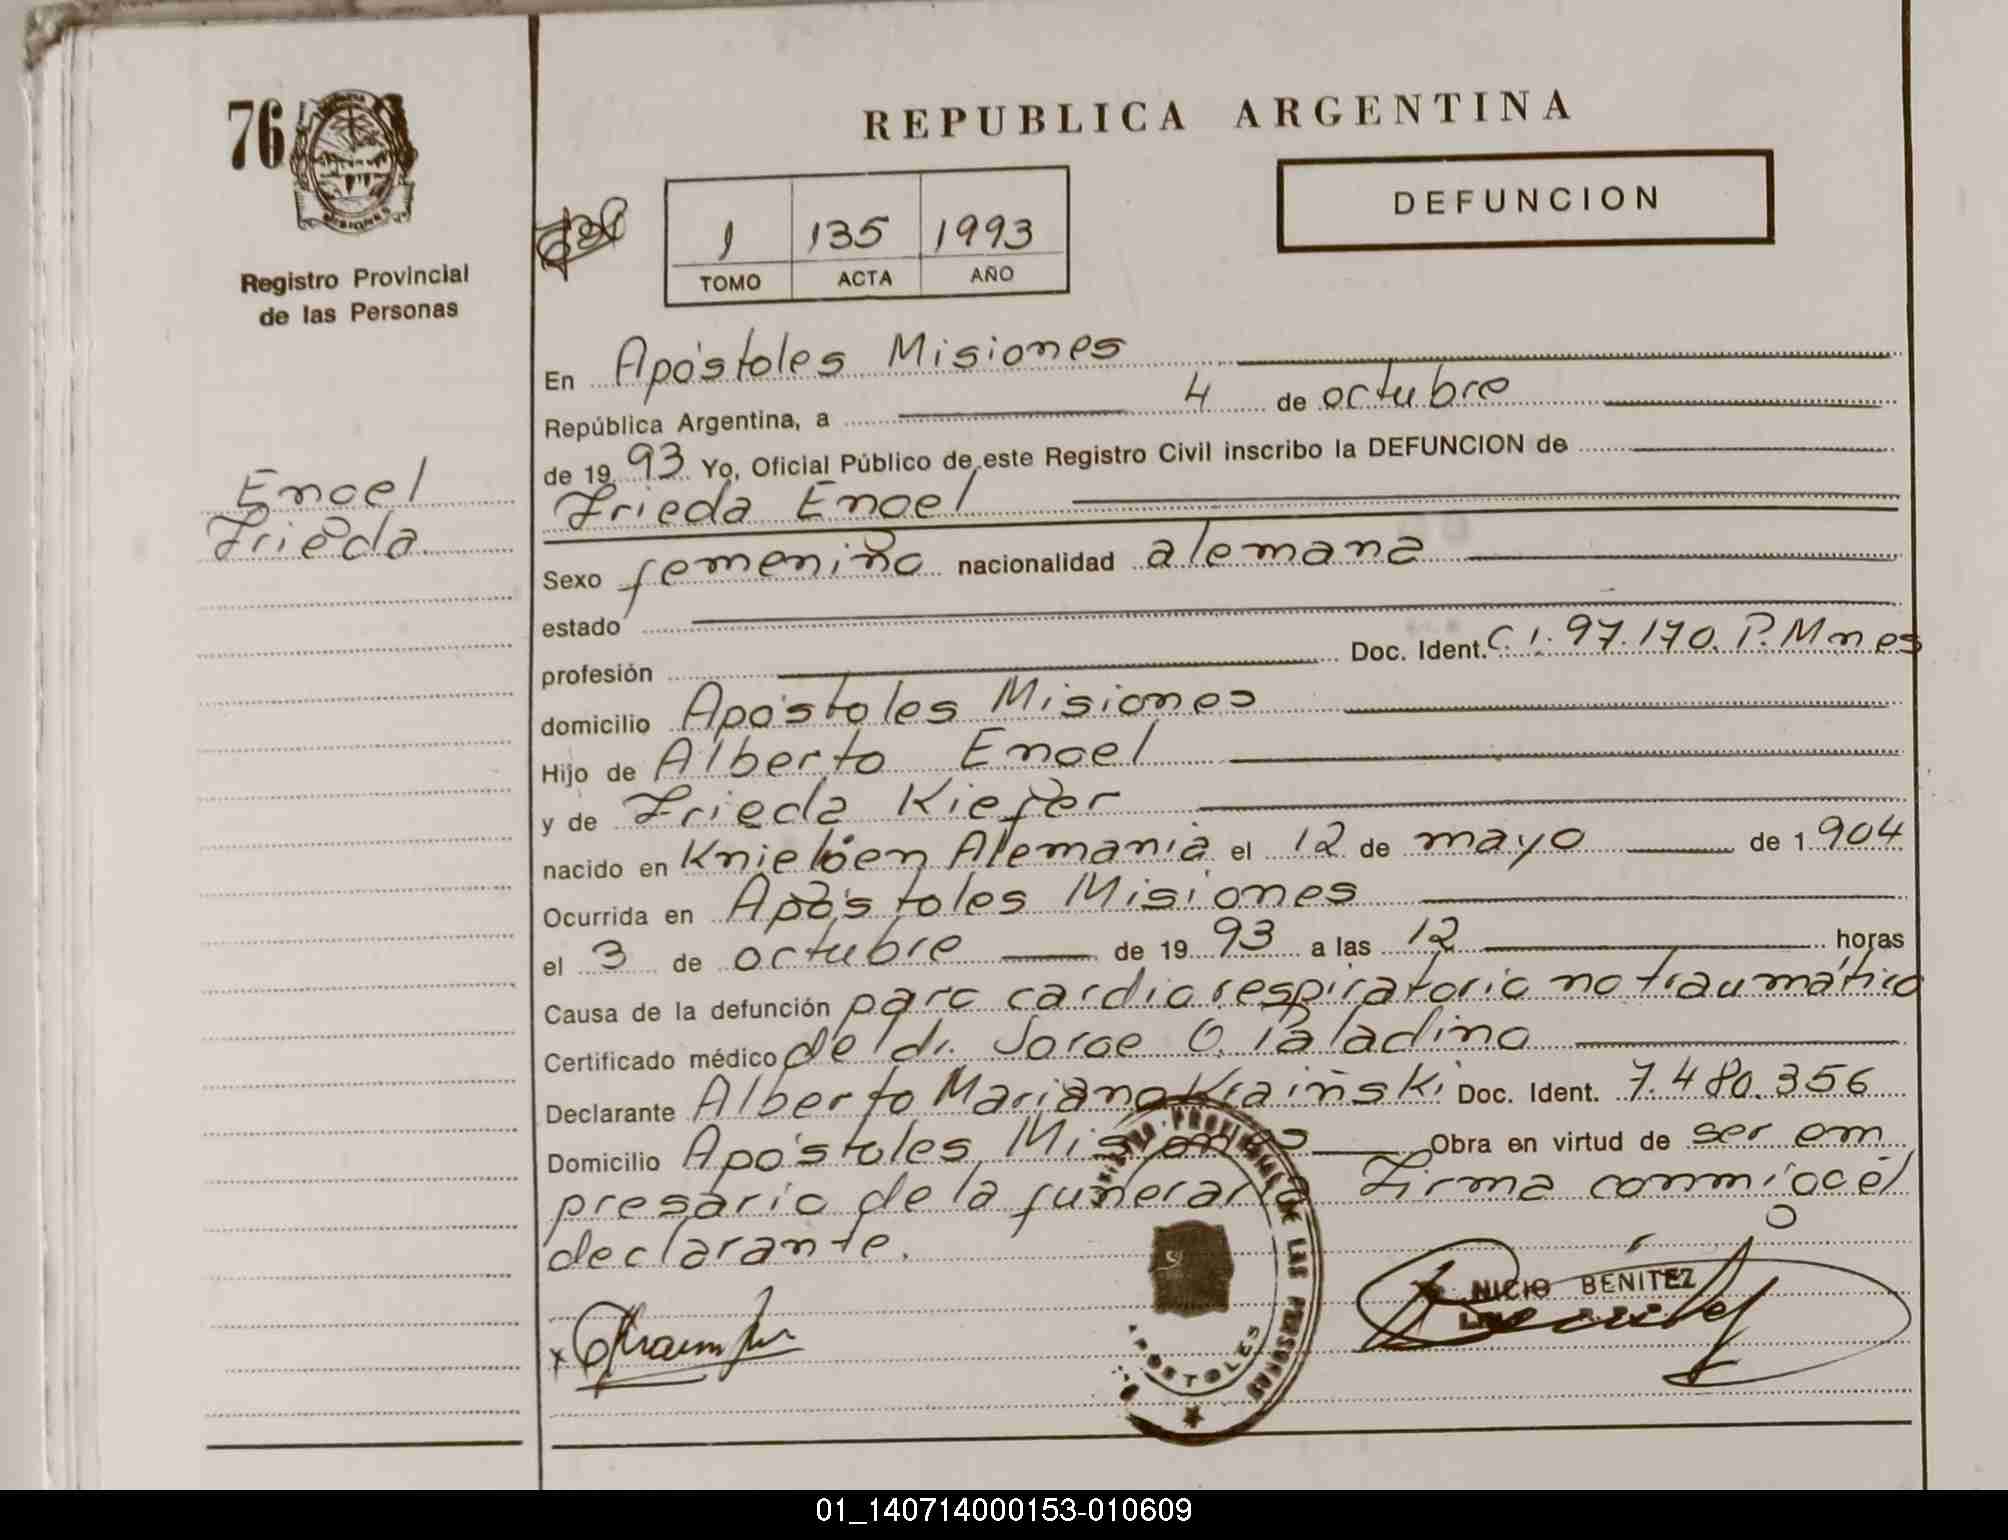 76
MISIONES
Registro Provincial
de las Personas
REPUBLICA ARGENTINA
DEFUNCION
1 135 1993
TOMO ACTA AÑO
En Apóstoles Misiones
República Argentina, a 4 de octubre
de 19 93 Yo, Oficial Público de este Registro Civil inscribo la DEFUNCION de
Engel
Frieda
Frieda Engel
Sexo femenino nacionalidad alemana
estado
profesión Doc. Ident. C.I. 97.170. P. Mnes
domicilio Apóstoles Misiones
Hijo de Alberto Engel
y de Frieda Kiefer
nacido en Alemania el 12 de mayo de 1 904
Ocurrida en Apóstoles Misiones
el 3 de octubre de 19 93 a las 12 horas
Causa de la defunción paro cardiorespiratorio no traumático
Certificado médico de dr. Jorge O. Paladino
Declarante Alberto Mariano Kraiñski Doc. Ident. 7.480.356
Domicilio Apóstoles Misiones Obra en virtud de ser em
presario de la funeraria Firma conmigo el
declarante.
REGISTRO PROVINCIAL DE LAS PERSONAS
APOSTOLES
NICIO BENITEZ
01_140714000153-010609